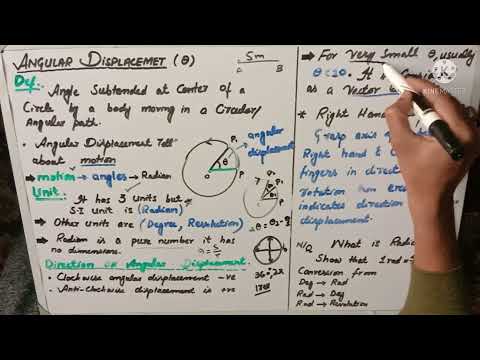 ANGULAR DISPLACEMET (θ)
5m
A B
Def.
• Angle Subtended at Center of a
Circle by a body moving in a Circular/
Angular path.
• Angular Displacement Tell
about motion
⇒ motion → angles → Radian
P₂
θ
O
P₁
angular
displacement
Unit:
• It has 3 units but
S.I unit is (Radian)
⇒ Other units are (Degree, Revolution)
⇒ Radian is a pure number it has
no dimensions.
Direction of Angular Displacement.
• Clockwise angular displacement → -ve
• Anti-Clockwise displacement is → +ve
⇒ For very Small θ usually
θ<10. It is
as a Vector
* Right Hand
Grasp axis
Right hand
fingers in direct
rotation
indicates direction
displacement.
N/Q What is Radia
Show that 1 rad =
Conversion from
Deg → Rad
Rad → Deg
Rad → Revolution
KINEMASTER